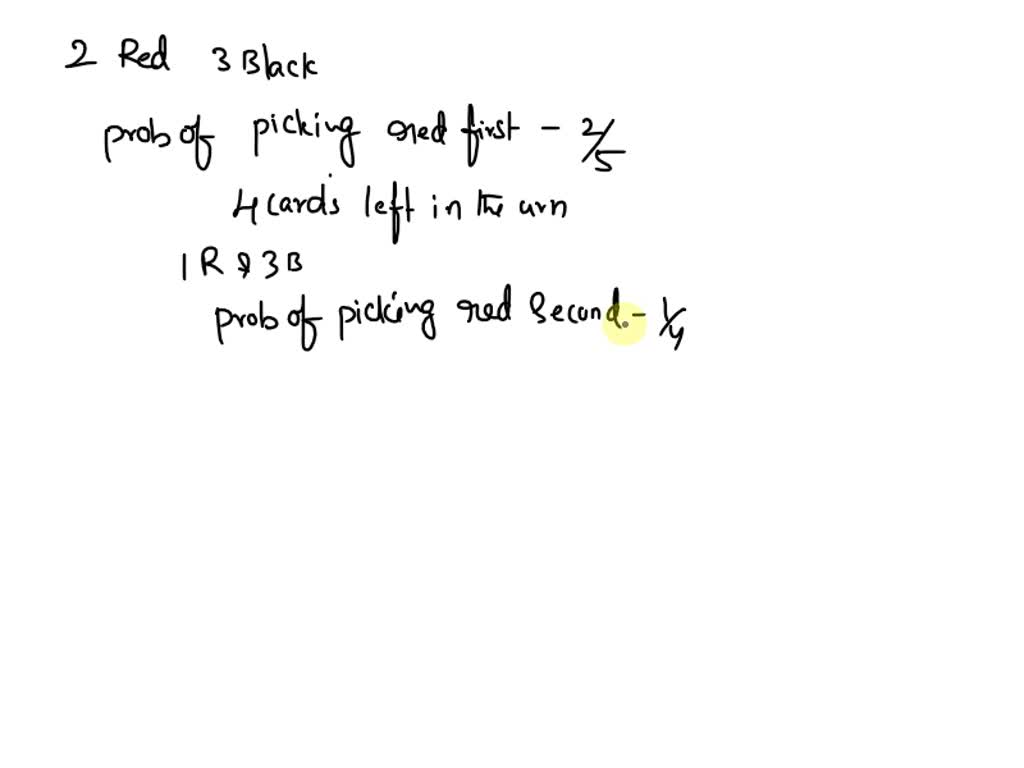 2 Red 3 Black
prob of picking red first - 2/5
4 cards left in the urn
1 R & 3 B
prob of picking red second. - 1/4